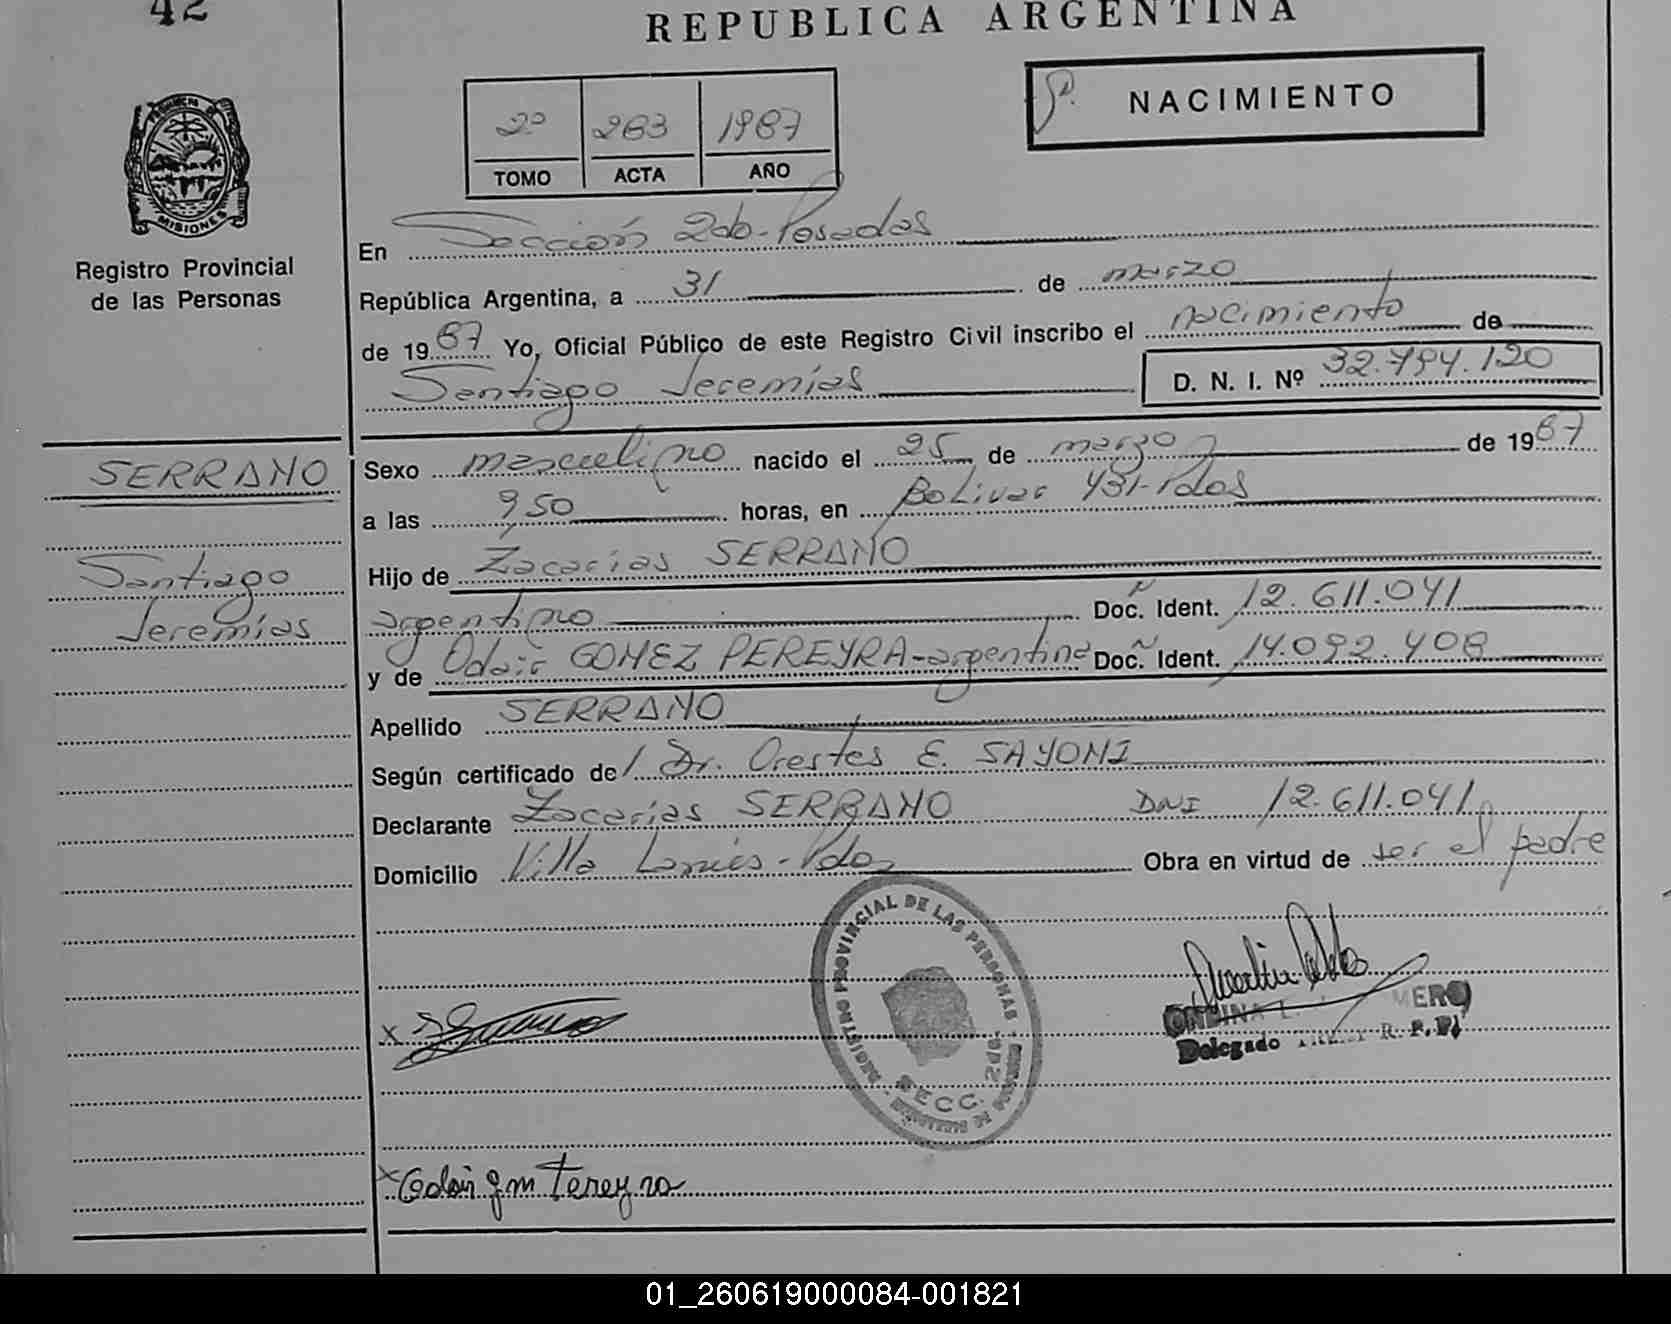 42
REPUBLICA ARGENTINA
2º 263 1987
TOMO ACTA AÑO
NACIMIENTO
PROVINCIA DE
MISIONES
Registro Provincial
de las Personas
En Sección 2da-Posadas
República Argentina, a 31 de marzo
de 1987 Yo, Oficial Público de este Registro Civil inscribo el nacimiento de
Santiago Jeremías D. N. I. Nº 32.794.120
SERRANO
Santiago
Jeremías
Sexo masculino nacido el 25 de marzo de 1987
a las 9,50 horas, en Bolivar 431-Pdas
Hijo de Zacarías SERRANO
argentino Doc. Ident. 12.611.041
y de Odair GOMEZ PEREYRA-argentina Doc. Ident. 14.092.408
Apellido SERRANO
Según certificado de/ Dr. Orestes E. SAYONI
Declarante Zacarías SERRANO DNI 12.611.041
Domicilio Villa Lanús-Pdas Obra en virtud de ser el padre
REGISTRO PROVINCIAL DE LAS PERSONAS
SECC. 2da.
ONDINA L. MERO
Delegado R. P. P.
x
x Odair gm Pereyra
01_260619000084-001821